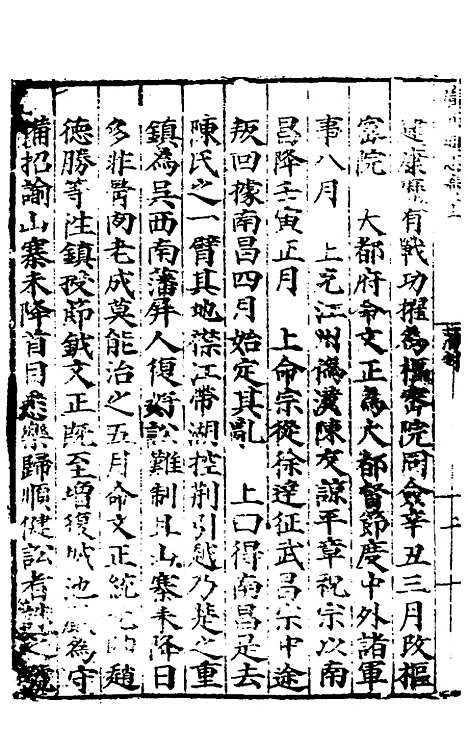 建康屢有戰功擢為樞密院同僉辛丑三月改樞
密院　大都府命文正為大都督節度中外諸軍
事八月　上克江州偽漢陳友諒平章祝宗以南
昌降壬寅正月　上命宗從徐達征武昌宗中途
叛回據南昌四月始定其亂　上曰得南昌是去
陳氏之一臂其地襟江帶湖控荆引越乃楚之重
鎮為吳西南藩屏人復好訟難制且山寨未降日
多非骨肉老成莫能治之五月命文正統元帥趙
德勝等往鎮授節鉞文正旣至增復城池嚴為守
備招諭山寨未降首目悉樂歸順健訟者